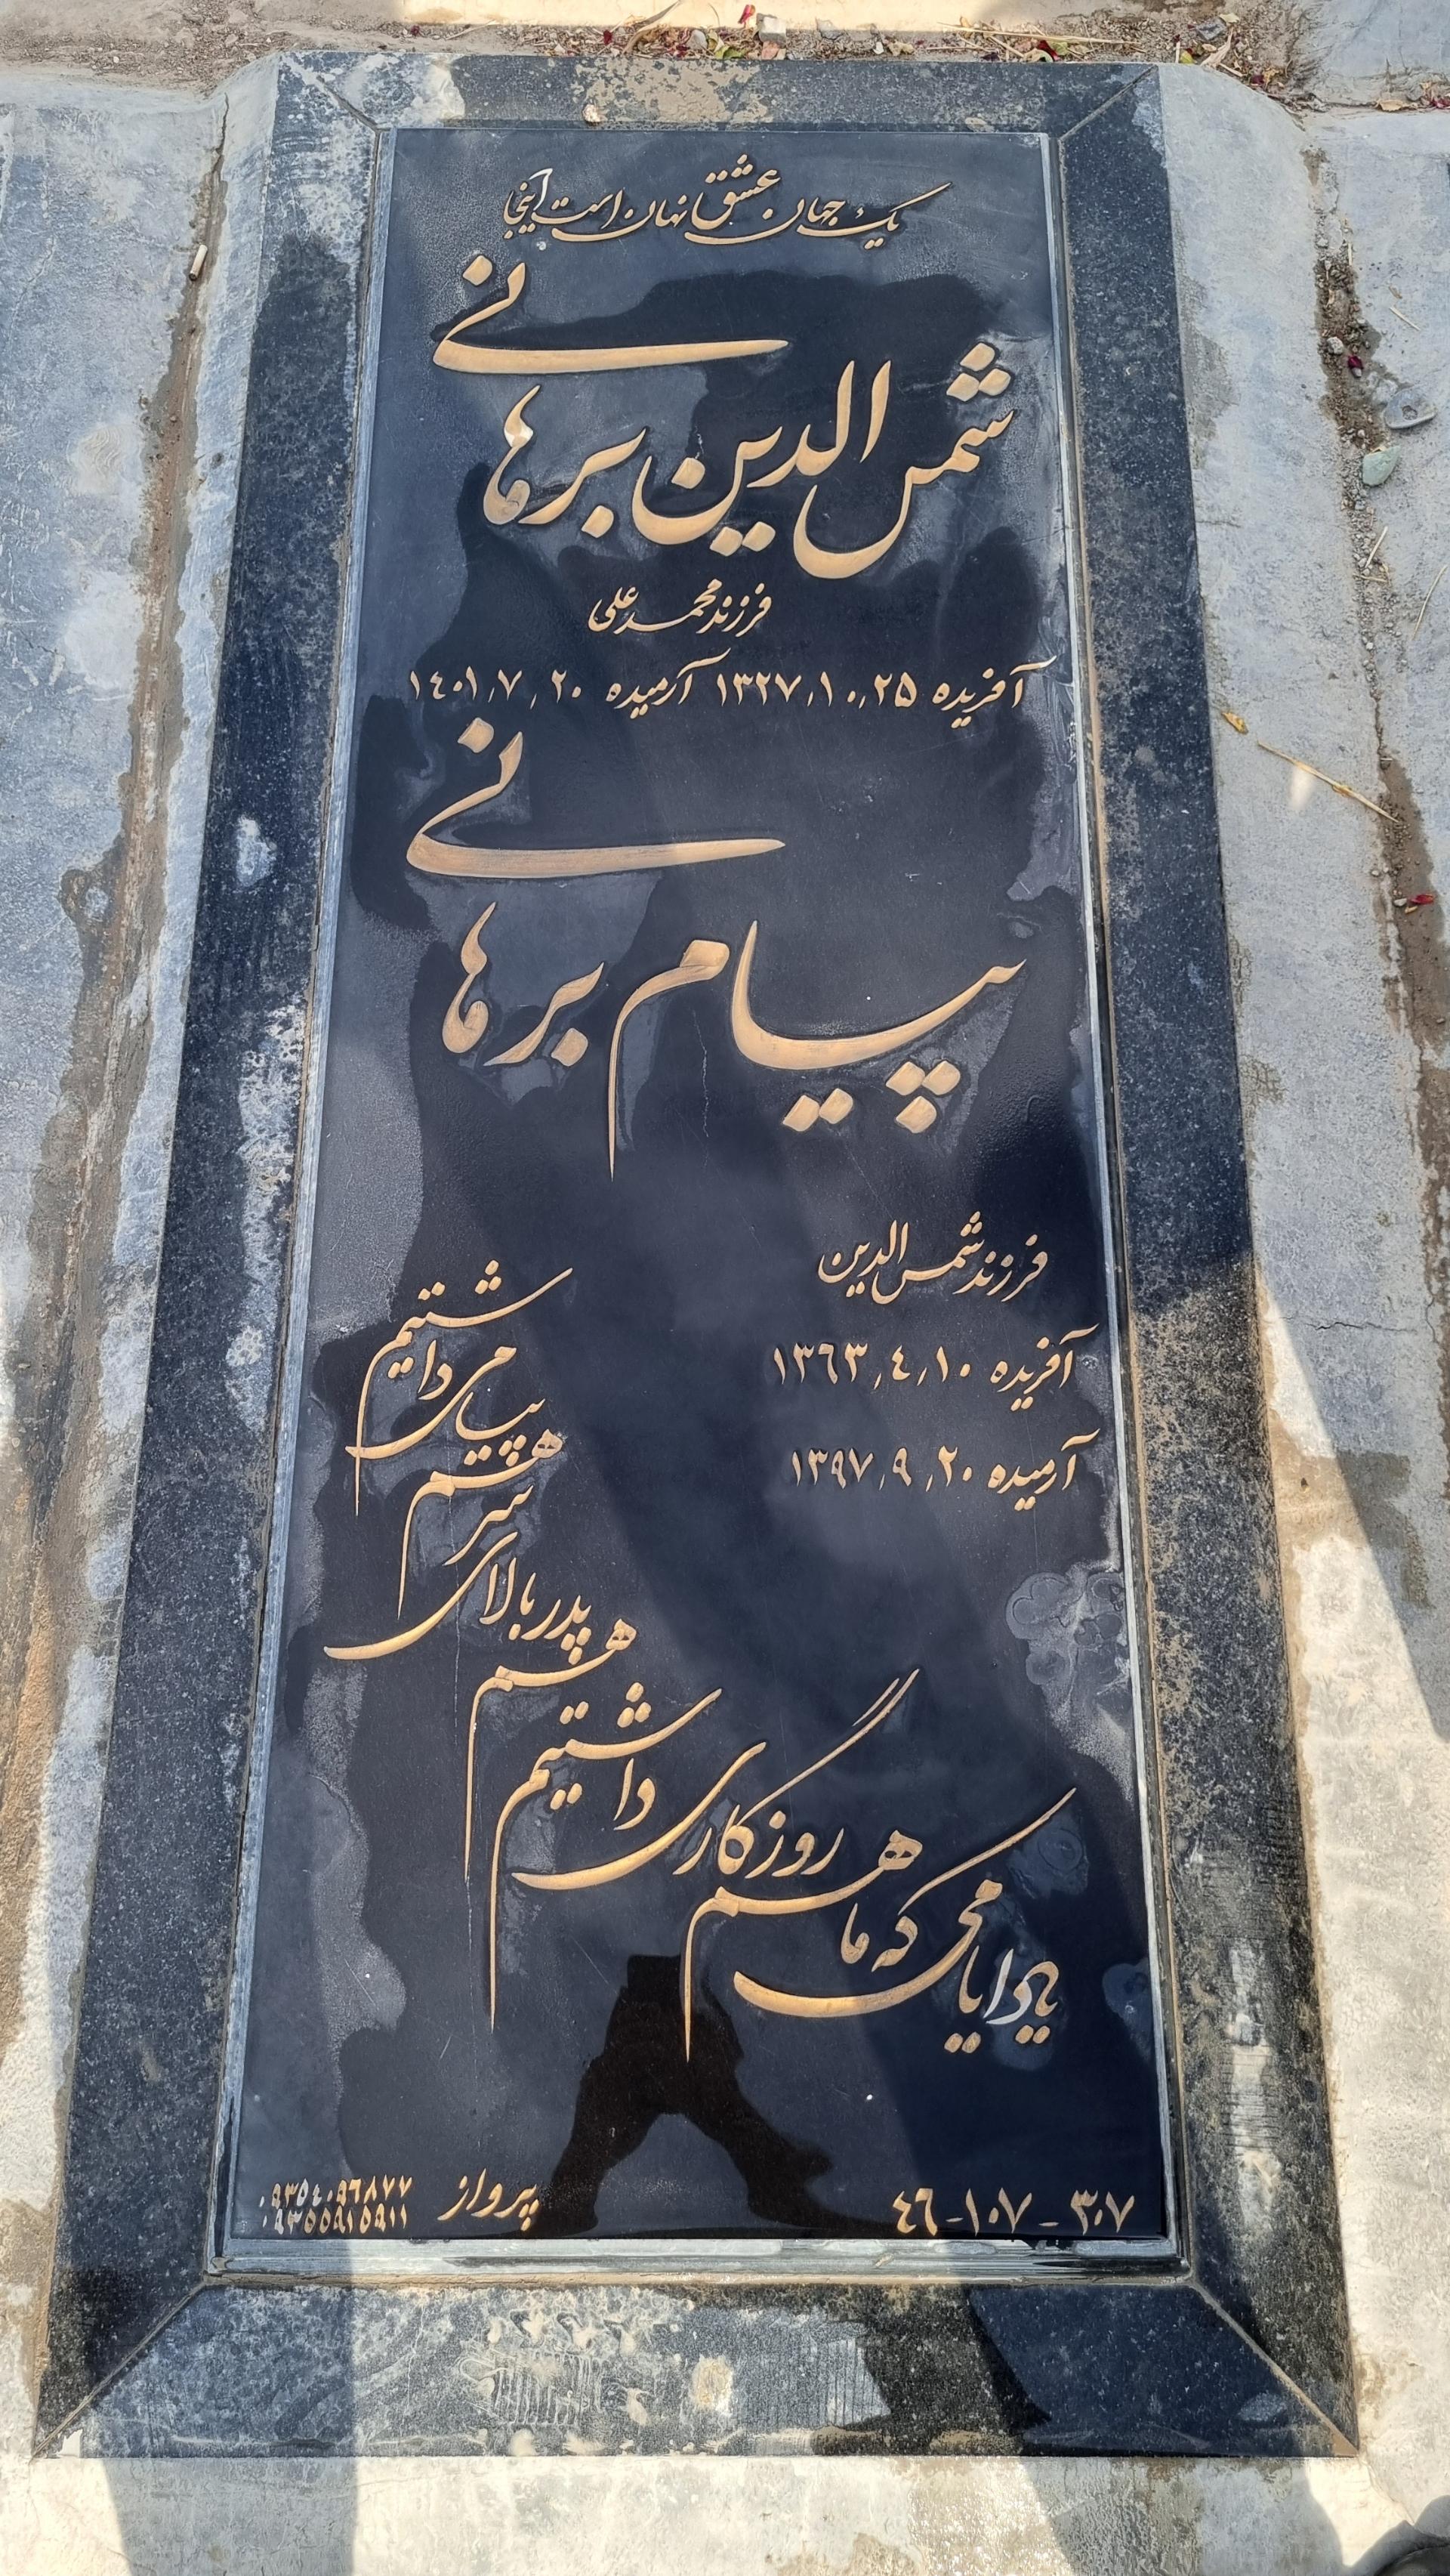 یک جهان عشق نهان است اینجا
شمس الدین برهانی
فرزند محمد علی
آفریده ۱۳۲۷٫۱۰٫۲۵ آرمیده ۱٤۰۱٫۷٫۲۰
پیام برهانی
فرزند شمس الدین
آفریده ۱۳٦۳٫٤٫۱۰
آرمیده ۱۳۹۷٫۹٫۲۰
یاد ایامی که ما هم روزگاری داشتیم
هم پدر بالای سر
هم پیامی داشتیم
۳۰۷ - ۱۰۷ - ٤٦
پرواز
۰۹۳٥٤۰۹٦۸۷۷
۰۹۳٥٥۹۱٥۹۱۱